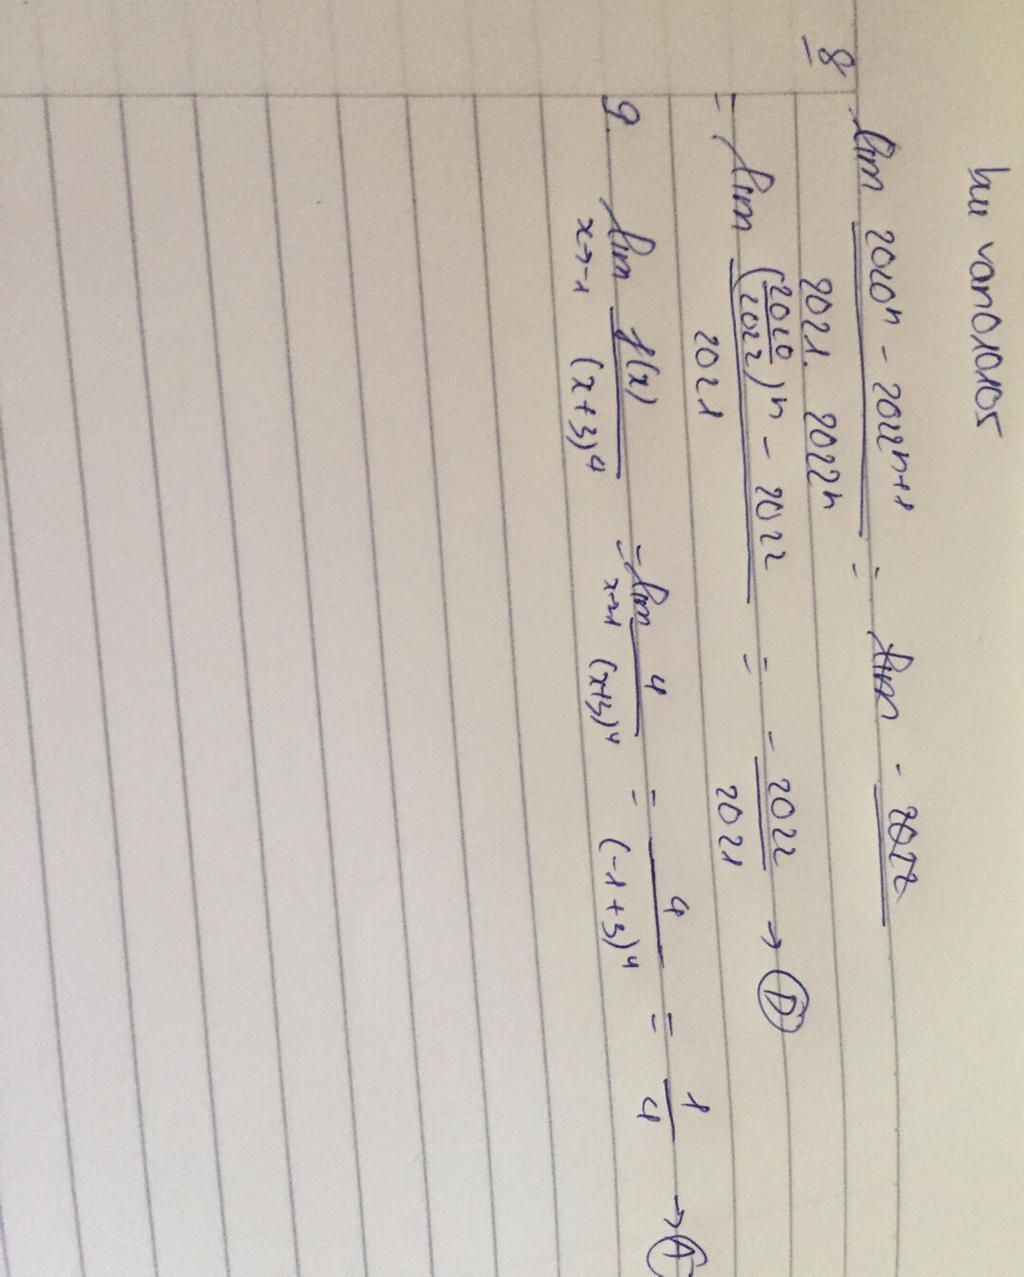 buivan010105
8 lim (2020ⁿ - 2022ⁿ⁺¹)/(2021. 2022ⁿ) = lim - 2022
= lim ((2020/2022)ⁿ - 2022)/2021 = - 2022/2021 → D
9. lim x→-1 f(x)/(x+3)⁴ = lim x→-1 4/(x+3)⁴ = 4/(-1+3)⁴ = 1/4 → A